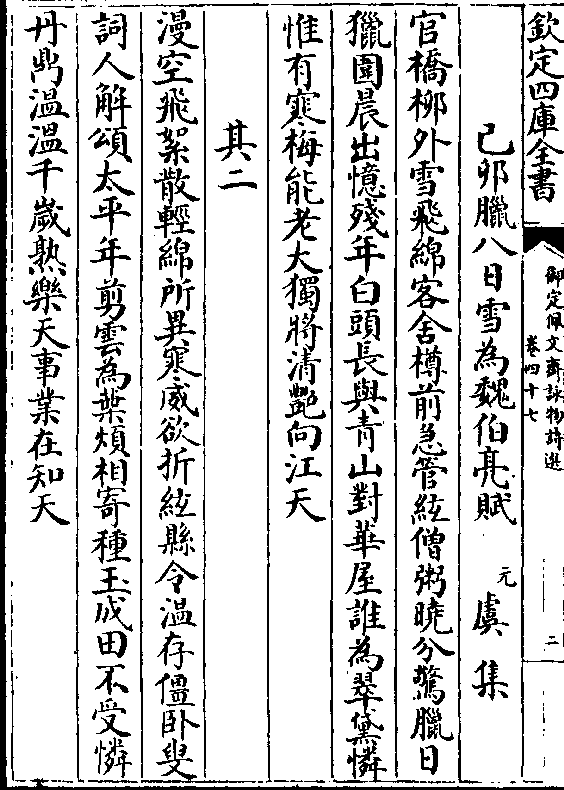 欽定四庫全書
御定佩文齋詠物詩選
卷四十七
二
己卯臘八日雪為魏伯亮賦 元 虞集
官橋柳外雪飛綿客舍樽前急管絃僧粥曉分驚臘日
獵圍晨出憶殘年白頭長與青山對華屋誰為翠黛憐
惟有寒梅能老大獨將清艷向江天
其二
漫空飛絮散輕綿所異寒威欲折絃縣令溫存僵卧叟
詞人解頌太平年剪雲為葉煩相寄種玉成田不受憐
丹鼎溫溫千歲熟樂天事業在知天